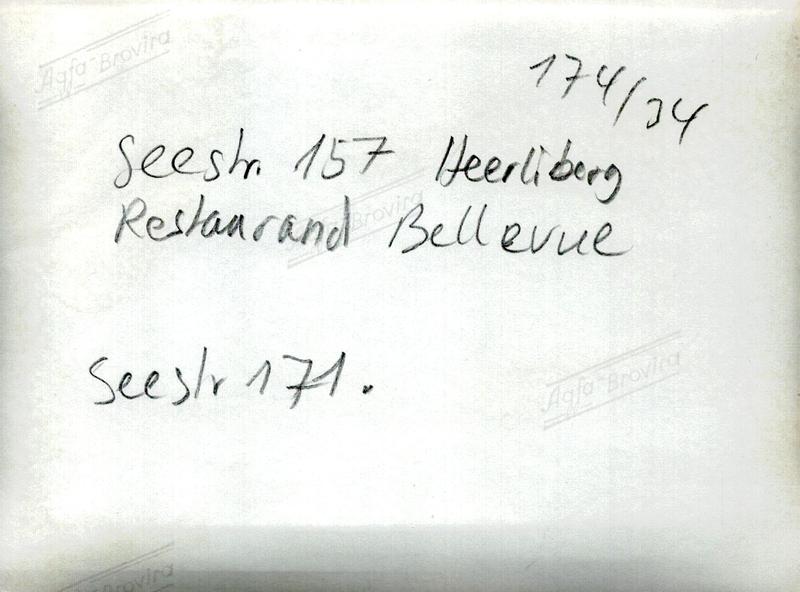 Agfa-Brovira
174/34
Seestr. 157 Heerliberg
Restaurand Bellevue
Agfa-Brovira
Seestr 171.
Agfa-Brovira
Agfa-Brovira